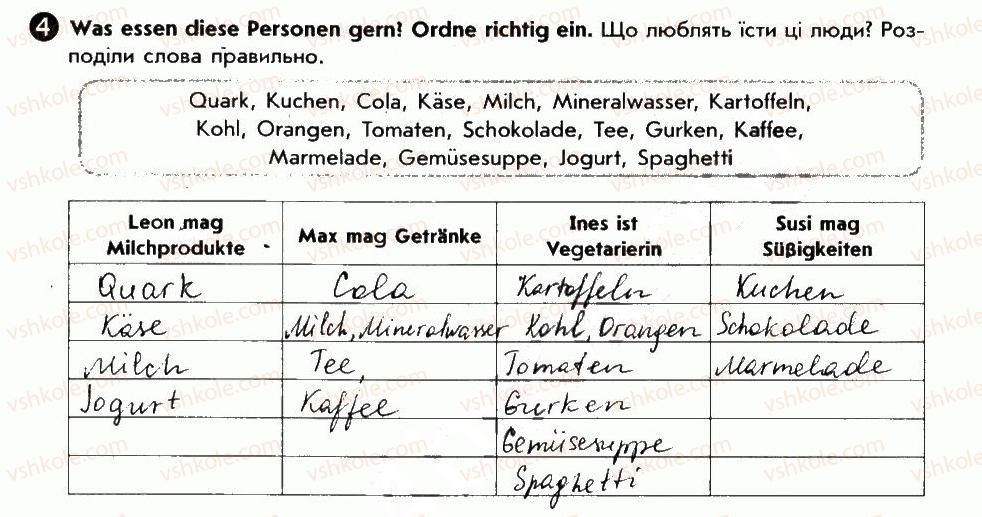 4 Was essen diese Personen gern? Ordne richtig ein. Що люблять їсти ці люди? Роз-
поділи слова правильно.
Quark, Kuchen, Cola, Käse, Milch, Mineralwasser, Kartoffeln,
Kohl, Orangen, Tomaten, Schokolade, Tee, Gurken, Kaffee,
Marmelade, Gemüsesuppe, Jogurt, Spaghetti
Leon mag Milchprodukte | Max mag Getränke | Ines ist Vegetarierin | Susi mag Süßigkeiten
Quark | Cola | Kartoffeln | Kuchen
Käse | Milch, Mineralwasser | Kohl, Orangen | Schokolade
Milch | Tee, | Tomaten | Marmelade
Jogurt | Kaffee | Gurken
Gemüsesuppe
Spaghetti
vshkole.com